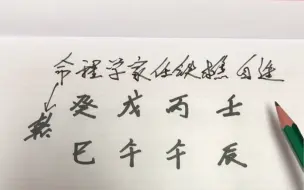 命理学家任铁樵自造
癸 戊 丙 壬
巳 午 午 辰